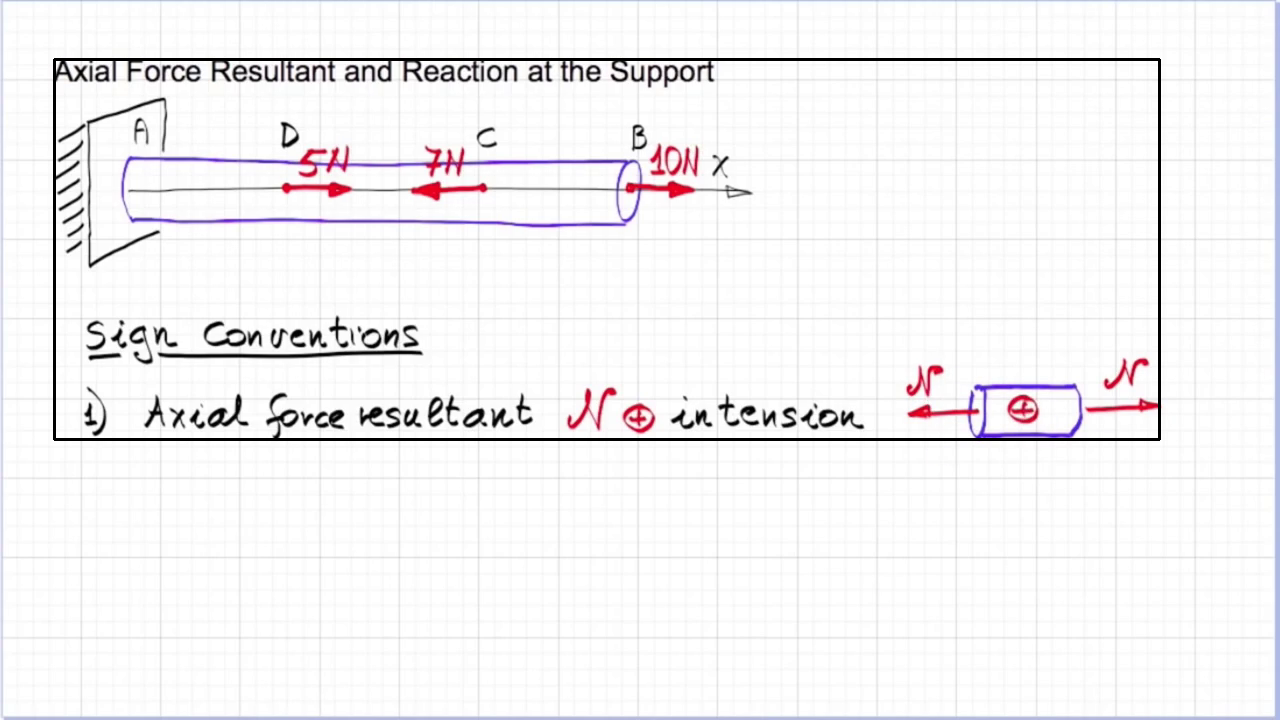 Axial Force Resultant and Reaction at the Support
A D C B
5N 7N 10N X
Sign Conventions
1) Axial force resultant N ⊕ in tension N ⊕ N